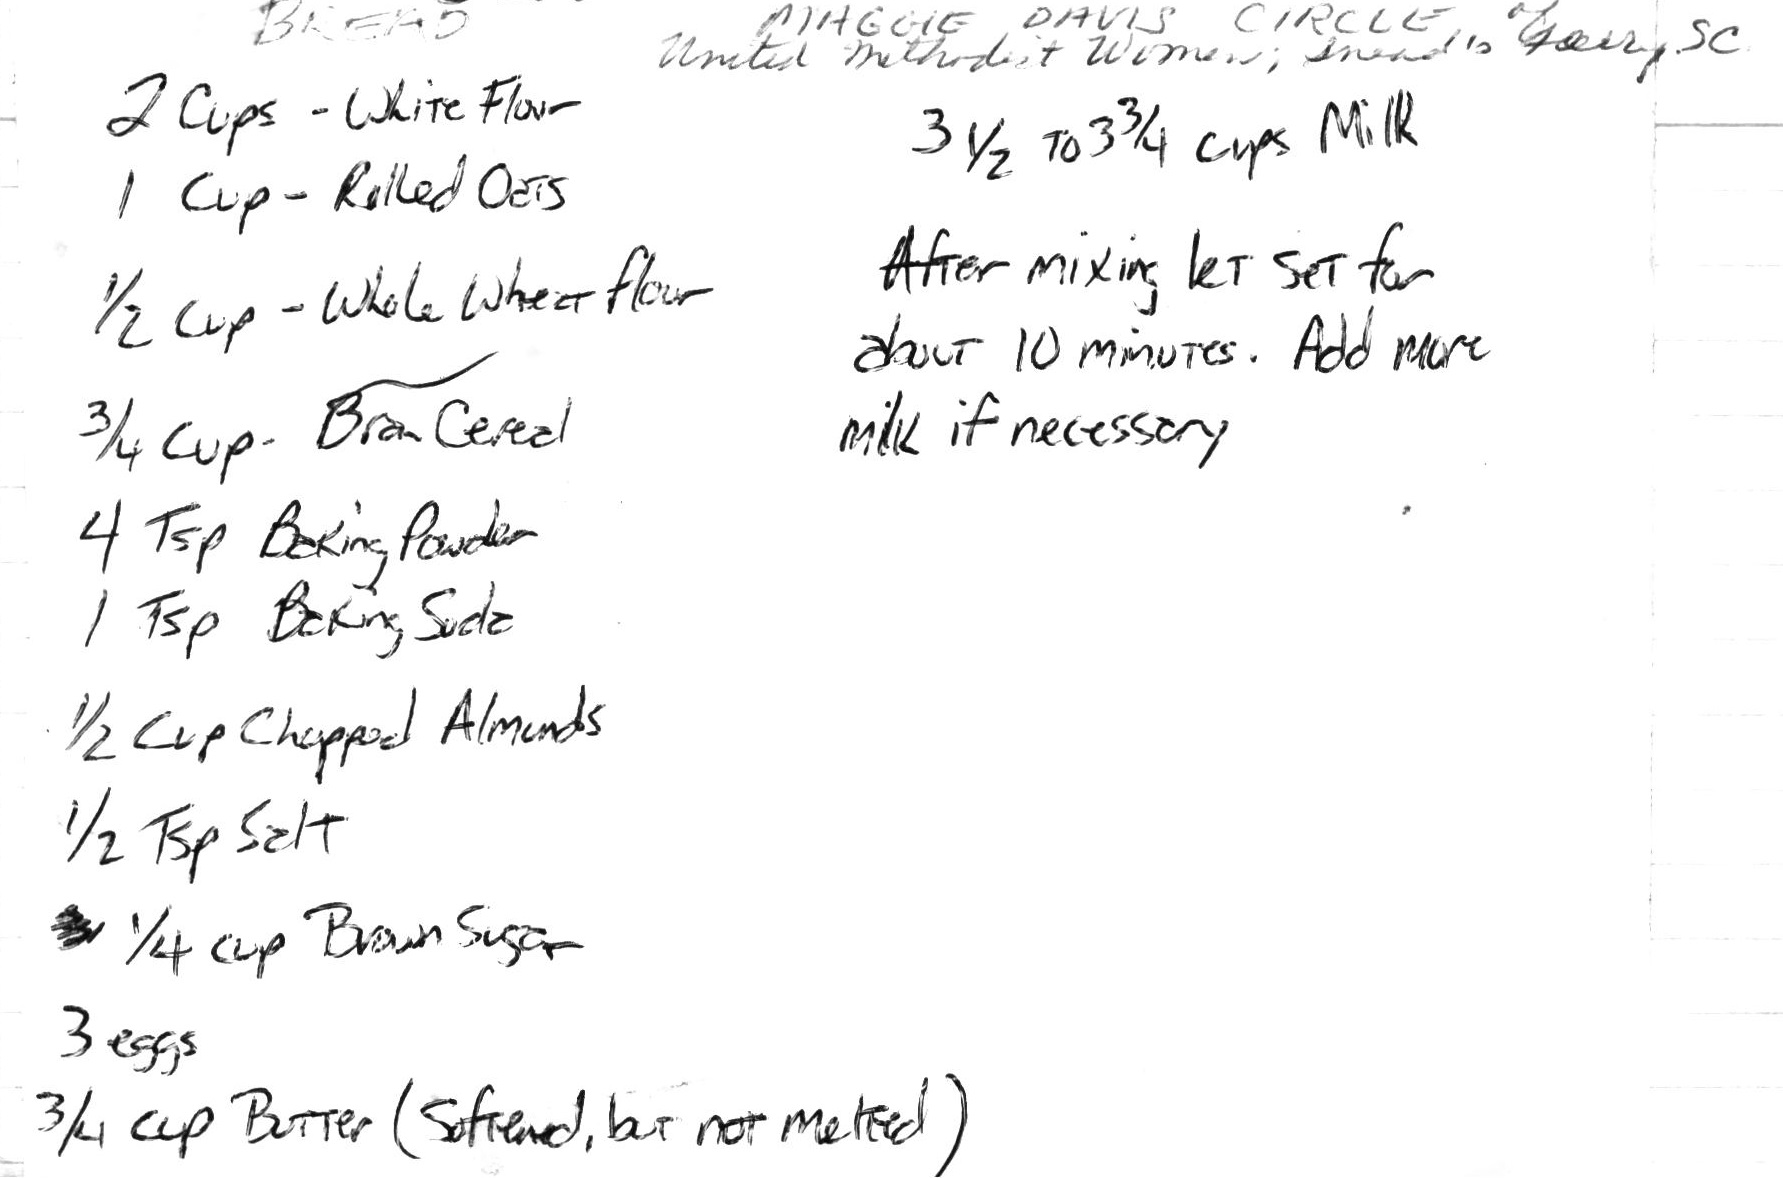 BREAD
MAGGIE DAVIS CIRCLE, of
United Methodist Women; SC
2 Cups - White Flour
1 Cup - Rolled Oats
1/2 Cup - Whole Wheat flour
3/4 Cup - Bran Cereal
4 Tsp Baking Powder
1 Tsp Baking Soda
1/2 Cup Chopped Almonds
1/2 Tsp Salt
1/4 cup Brown Sugar
3 eggs
3/4 cup Butter (Softened, but not melted)
3 1/2 To 3 3/4 cups Milk
After mixing let set for
about 10 minutes. Add more
milk if necessary